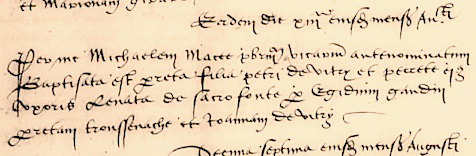 et Marionam
Eodem die xiiij eiusdem mensis Augusti
Per me Michaelem Macee pbrm vicarium antenominatum
Baptisata est perreta filia petri de vitry et perrette eius
Uxoris Levata de sacro fonte per Egidium gaudin
perretam troussenache et Joannam de vitry
Decima septima eiusdem mensis Augusti